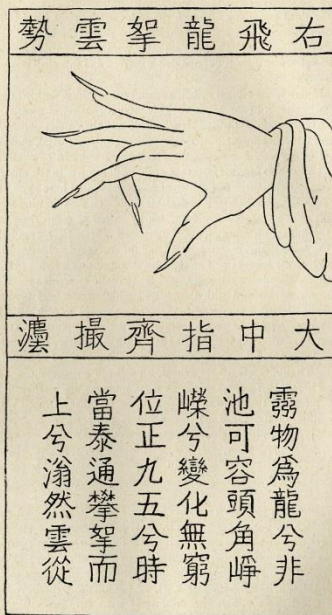 右飛龍拏雲勢
大中指齊撮瀘
靈物爲龍兮非
池可容頭角崢
嶸兮變化無窮
位正九五兮時
當泰通攀拏而
上兮滃然雲從